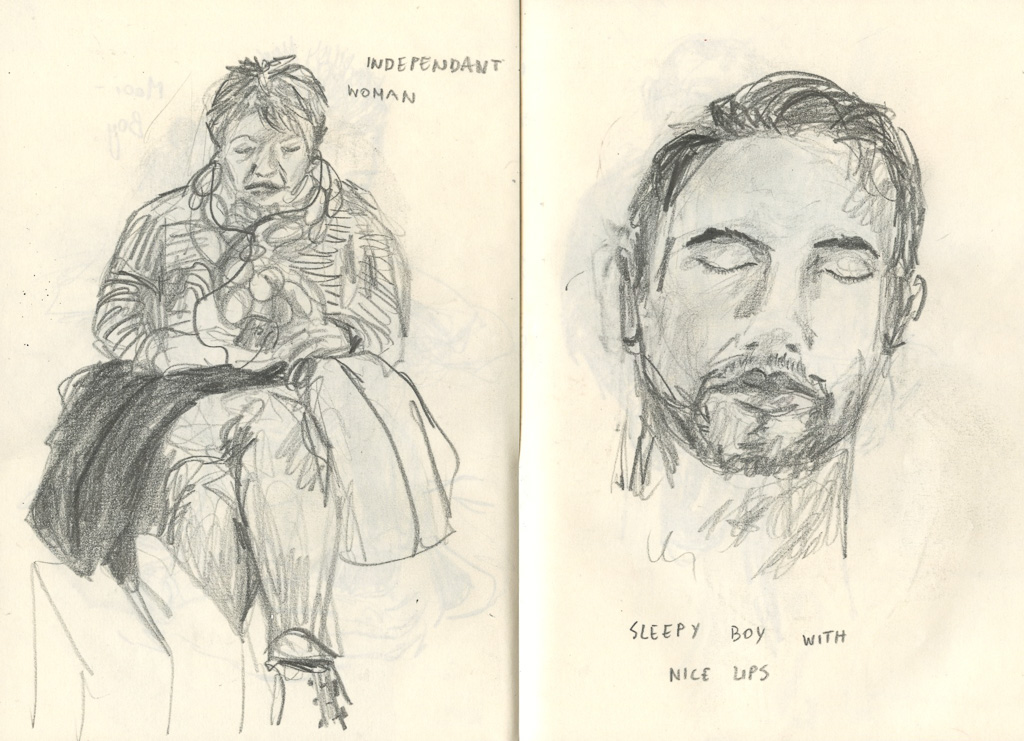 INDEPENDANT
WOMAN
SLEEPY BOY WITH
NICE LIPS